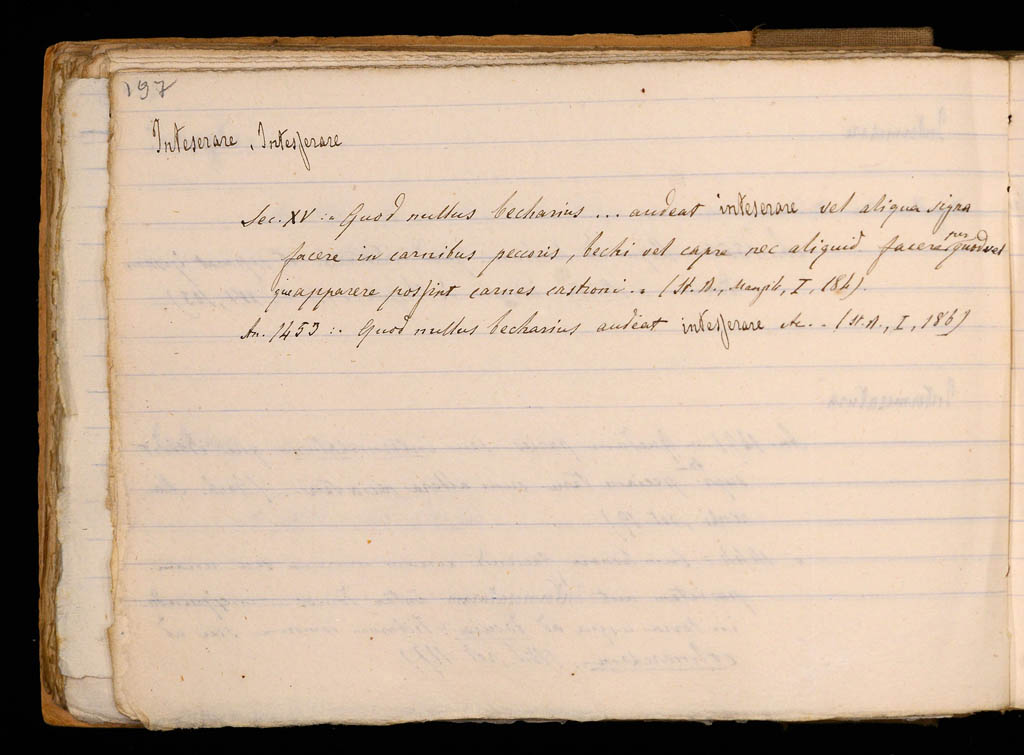 197
Inteserare, Intesserare
Sec. XV: "Quod nullus becharius ... audeat inteserare vel aliqua signa
facere in carnibus peccoris, bechi vel capre nec aliquid facere per quod vel
que apparere possint carnes castroni." (St. A., I, 184).
An. 1453: "Quod nullus becharius audeat intesserare &c." (St. A., I, 186)